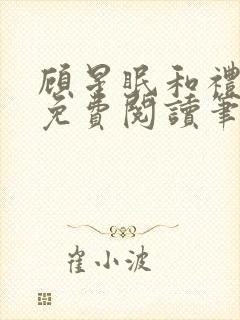 顾星眠和禮
免費閱讀筆
崔小波